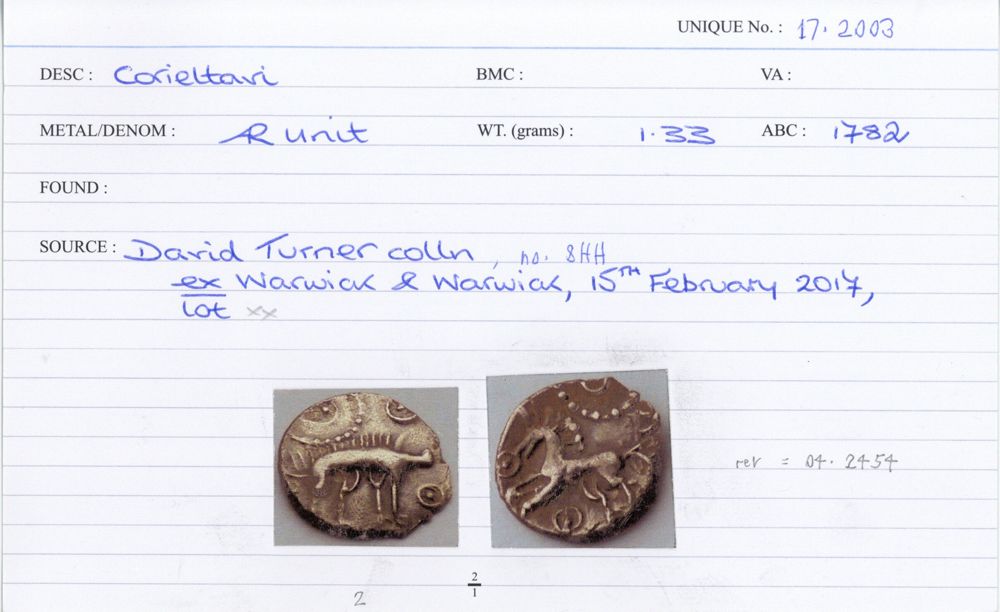 UNIQUE No. : 17.2003
DESC : Corieltavi BMC : VA :
METAL/DENOM : AR unit WT. (grams) : 1.33 ABC : 1782
FOUND :
SOURCE : David Turner colln, no. 8HH
ex Warwick & Warwick, 15TH February 2017,
lot xx
rev = 04.2454
2/1
2